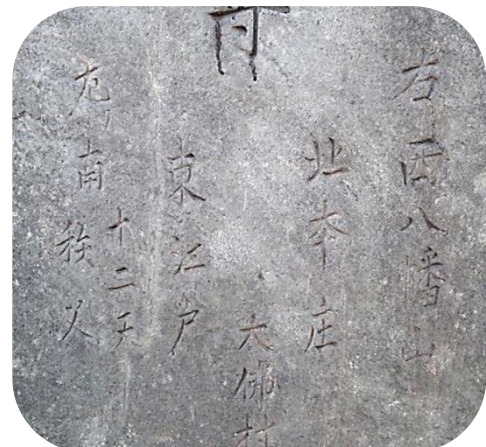 右西八幡山
北本庄
大佛村
東江戸
十二天
左南秩父